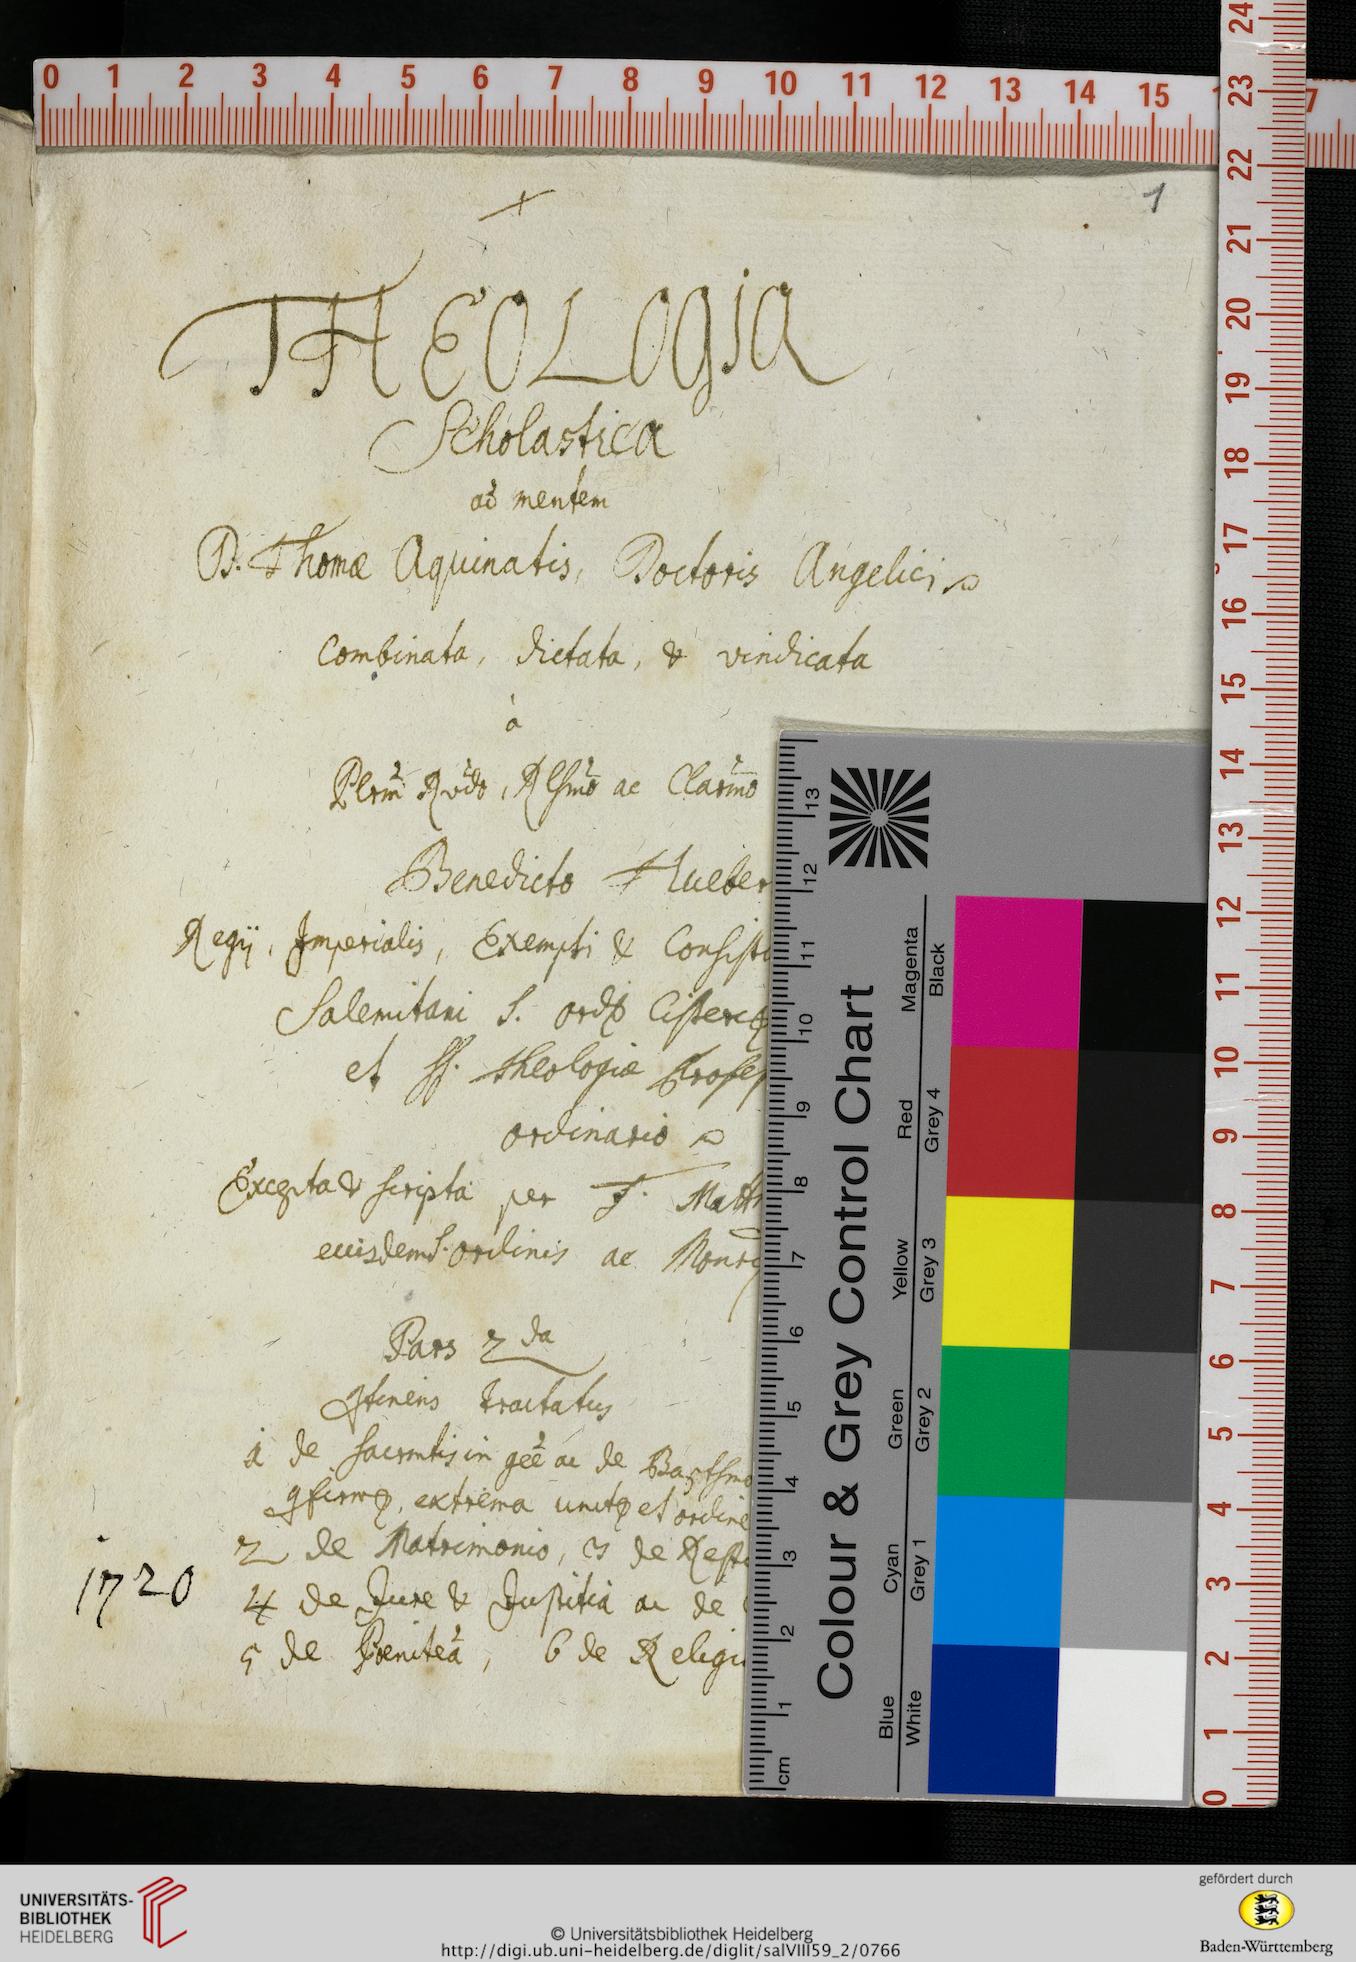 1
THEOLOGIA
Scholastica
ad mentem
D. Thomæ Aquinatis, Doctoris Angelici
combinata, dictata, & vindicata
à
Benedicto Hueber
Regij, Imperialis, Exempti & Consist
Salemitani S.
et SS. theologiæ Profess
ordinario
Excepta & scripta per F. Matth
eiusdem S. ordinis ac
Pars 2da
tractatus
1 de in ac de
extrema et ordine
2 de Matrimonio, 3 de Rest
1720
4 de Jure & Justitia ac de
5 de 6 de Religi
0 1 2 3 4 5 6 7 8 9 10 11 12 13 14 15 7
24 23 22 21 20 19 18 17 16 15 14 13 12 11 10 9 8 7 6 5 4 3 2 1 0
13 12 11 10 9 8 7 6 5 4 3 2 1 cm
Colour & Grey Control Chart
Blue Cyan Green Yellow Red Magenta
White Grey 1 Grey 2 Grey 3 Grey 4 Black
UNIVERSITÄTS-
BIBLIOTHEK
HEIDELBERG
© Universitätsbibliothek Heidelberg
http://digi.ub.uni-heidelberg.de/diglit/salVIII59_2/0766
gefördert durch
Baden-Württemberg